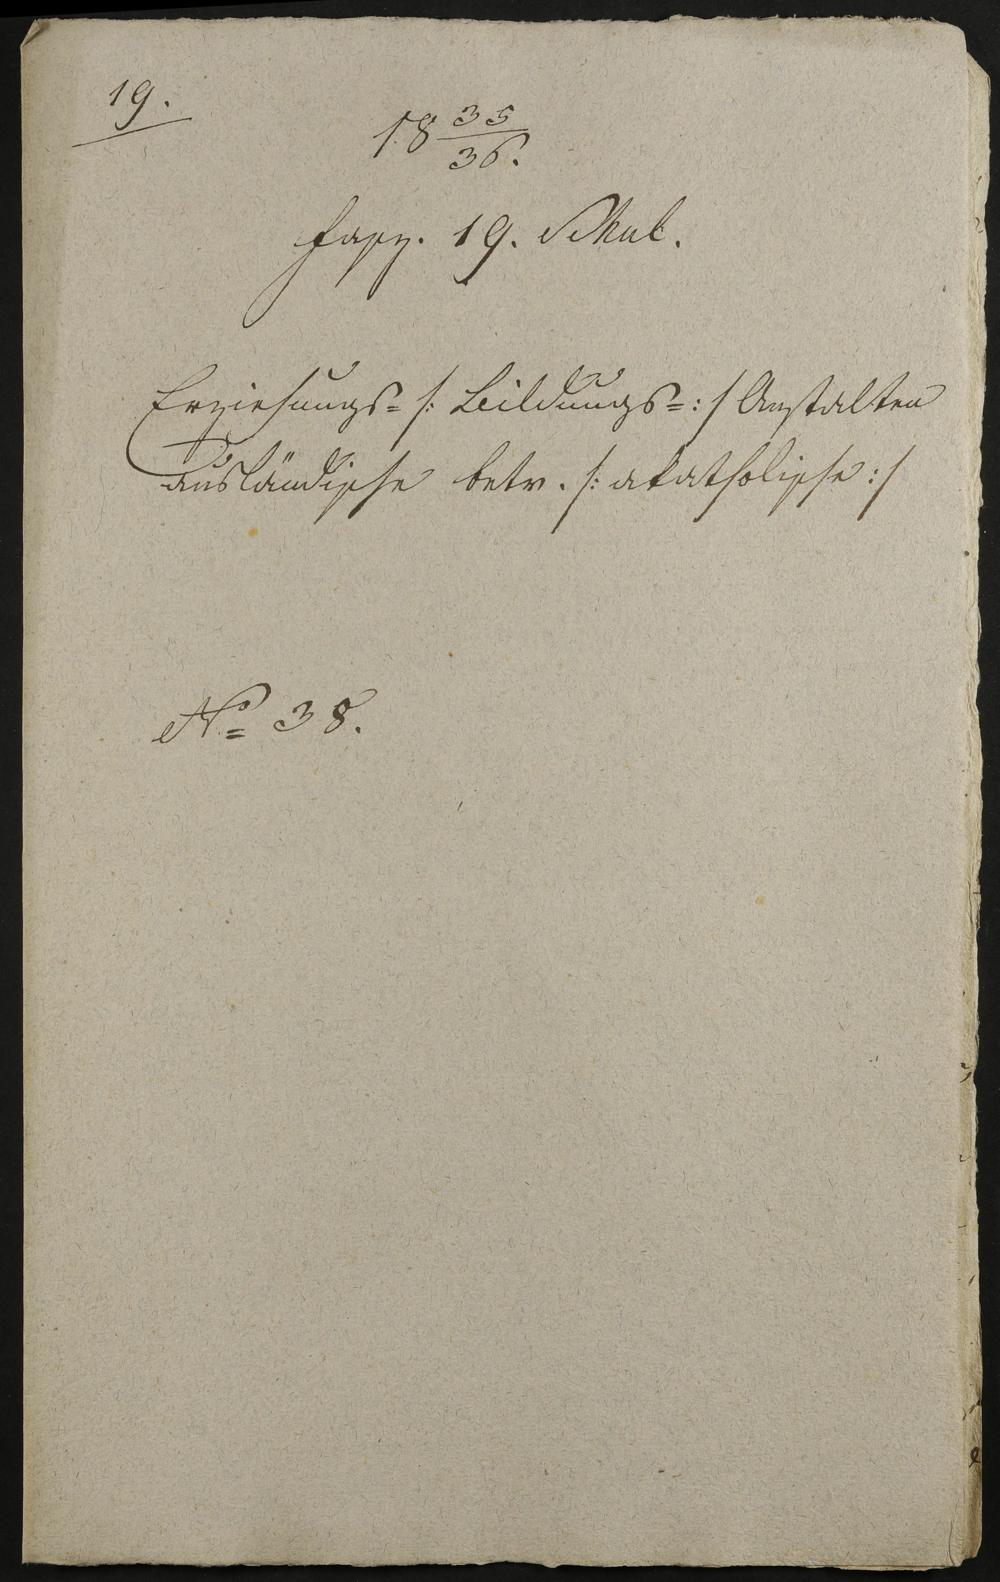 19.
18 35/36.
Fasz. 19. Schul.
Erziehungs= /: Bildungs=:/ Anstalten
ausländische betr. /: akatholische :/
No 38.